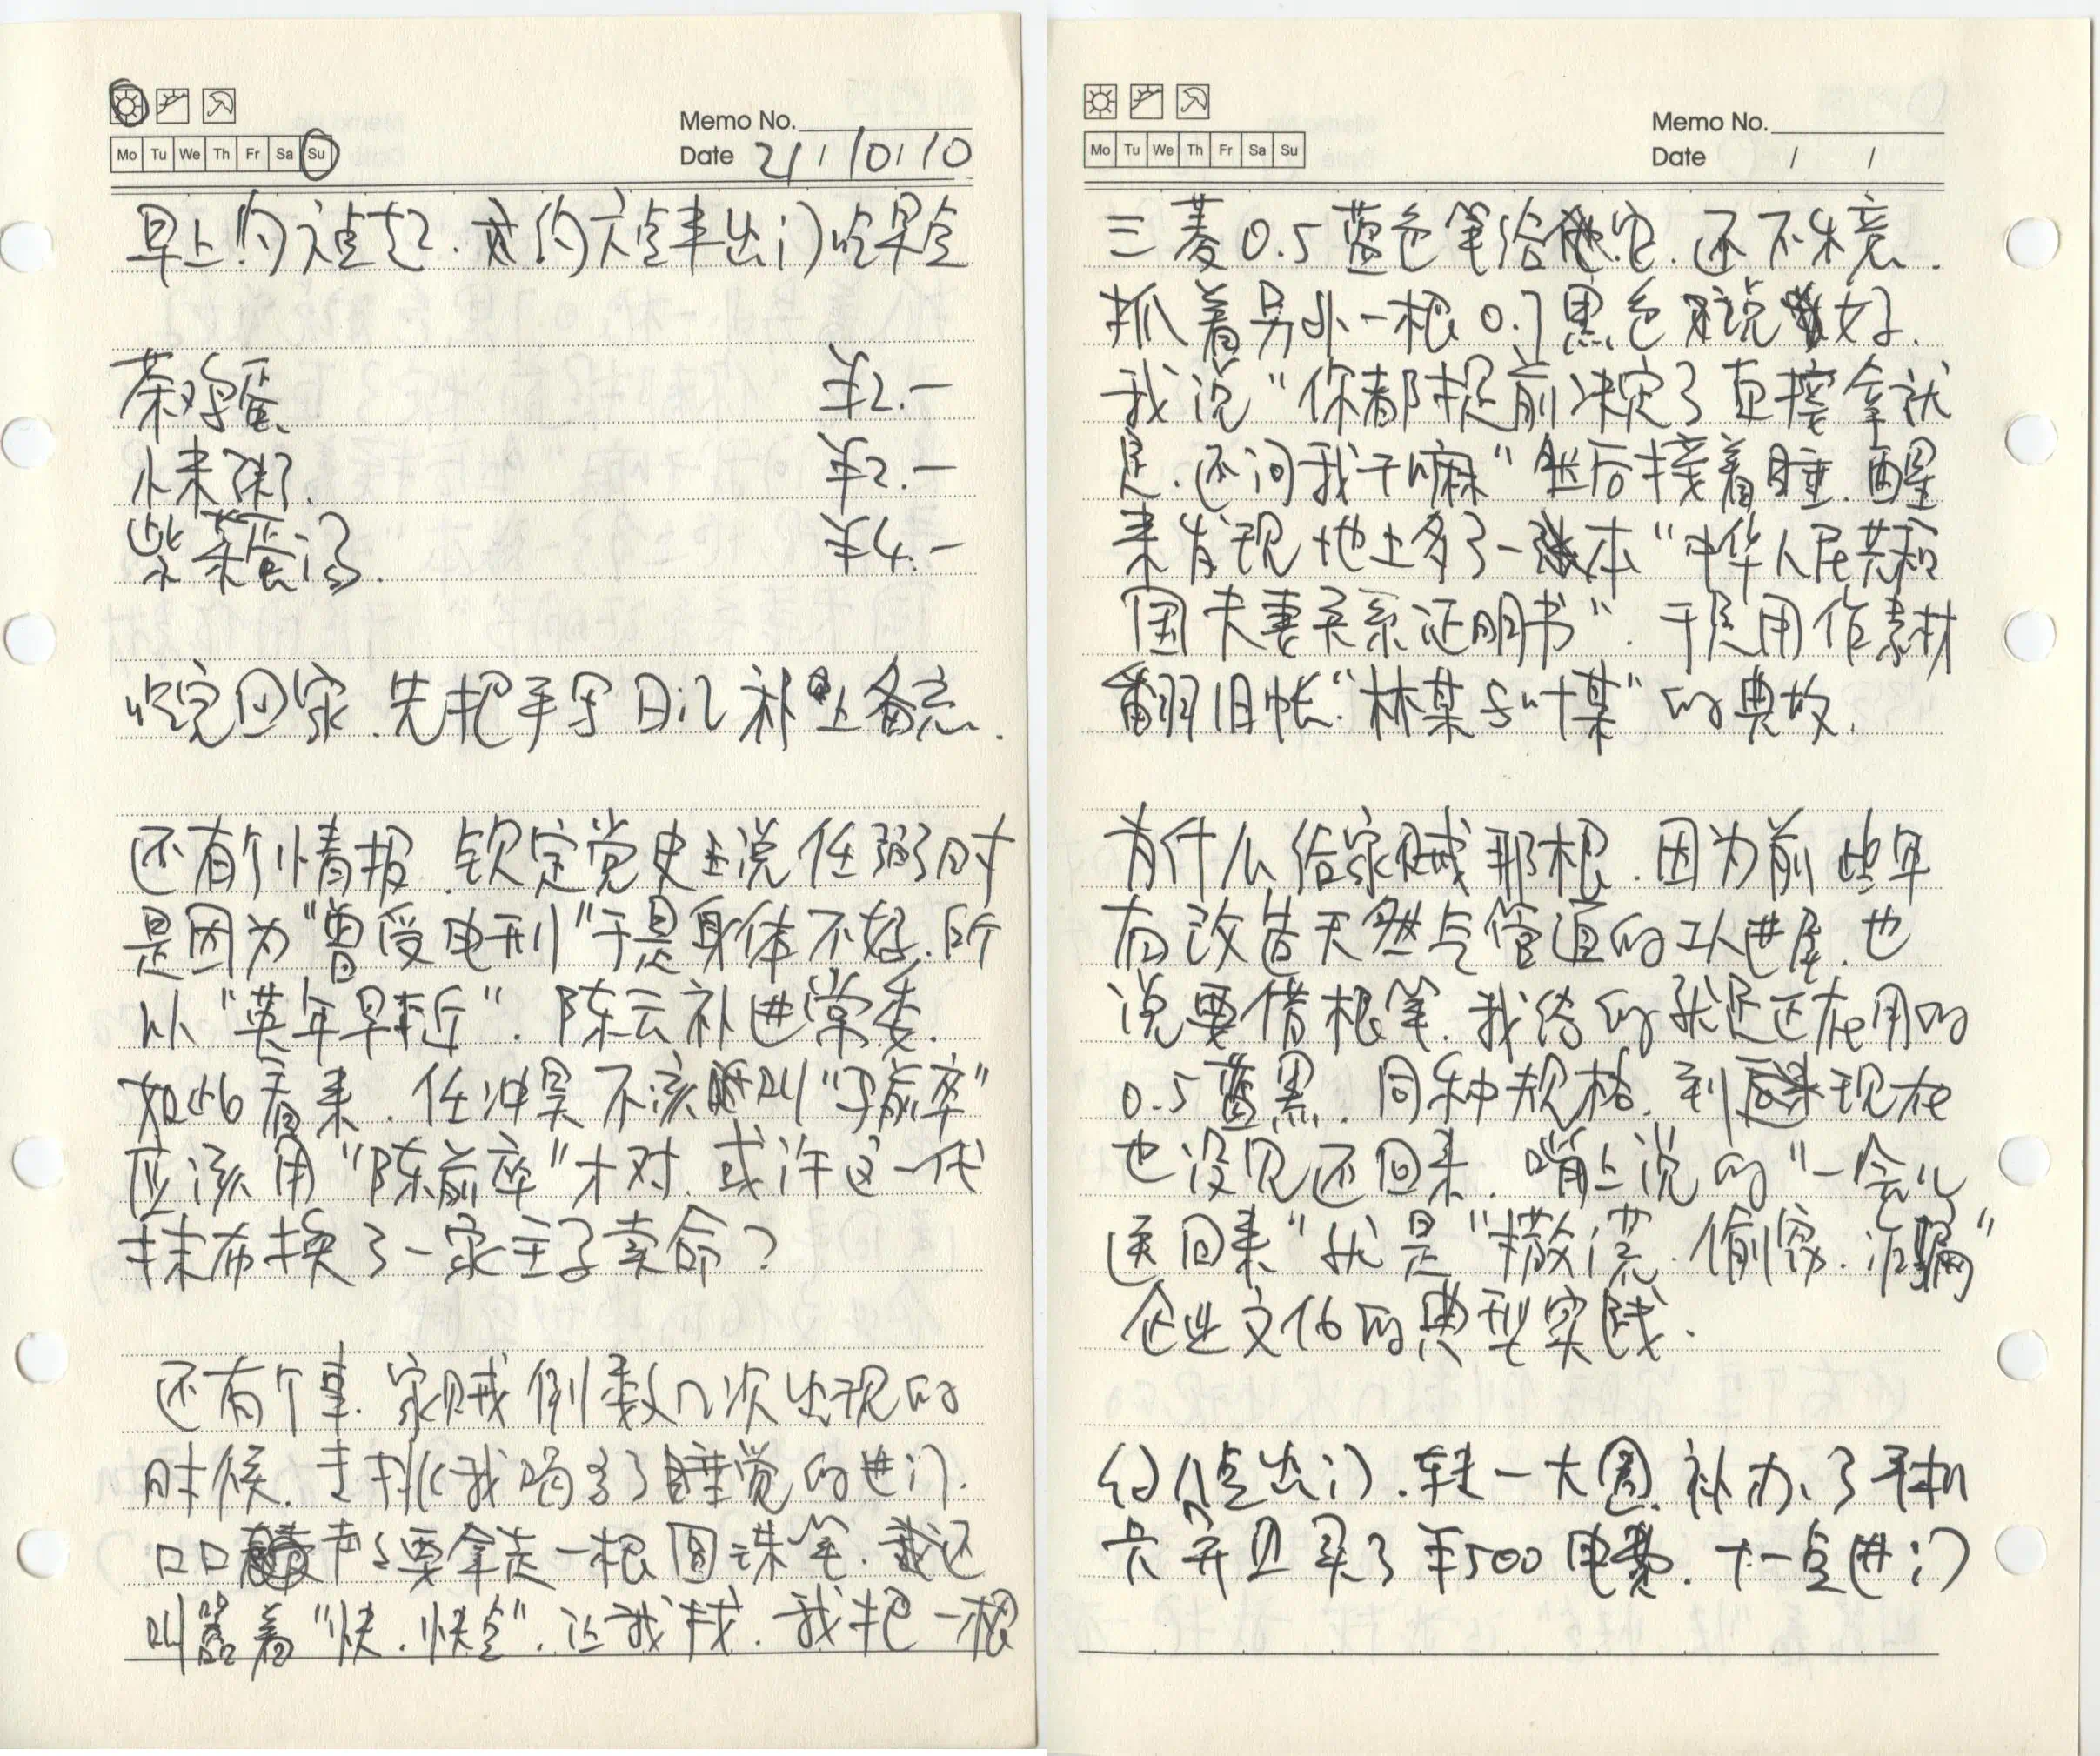 Mo Tu We Th Fr Sa Su
Memo No.
Date 21/10/10
早上约六点起.大约六点半出门吃早点
茶鸡蛋 ¥2.—
小米粥. ¥2.—
紫菜蛋汤. ¥4.—
吃完回家.先把手写日记补上备忘.
还有个情报.钦定党史上说任弼时
是因为“曾受电刑”于是身体不好.所
以“英年早逝”.陈云补进常委.
如此看来.任冲昊不该叫“马前卒”
应该用“陈前卒”才对.或许这一代
抹布换了一家主子卖命?
还有个事.家贼倒数几次出现的
时候.专挑我喝多了睡觉的进门.
口口声声要拿走一根圆珠笔.还
叫嚣着“快.快点”.让我找.我把一根
Mo Tu We Th Fr Sa Su
Memo No.
Date / /
三菱0.5蓝色笔给它.还不乐意.
抓着另外一根0.7黑色说好.
我说“你都提前决定了直接拿就
是.还问我干嘛”然后接着睡.醒
来发现地上多了一本“中华人民共和
国夫妻关系证明书”.于是用作素材
翻旧帐.“林某与叶某”的典故.
有什么给家贼那根.因为前些年
有改造天然气管道的工人进屋.也
说要借根笔.我给的就是还在用的
0.5蓝黑.同种规格.到现在
也没见还回来.嘴上说的“一会儿
送回来”就是“撒谎.偷窃.诈骗”
企业文化的典型实践.
约八点出门.转一大圈.补办了手机
卡并且买了¥500电费.十一点进门